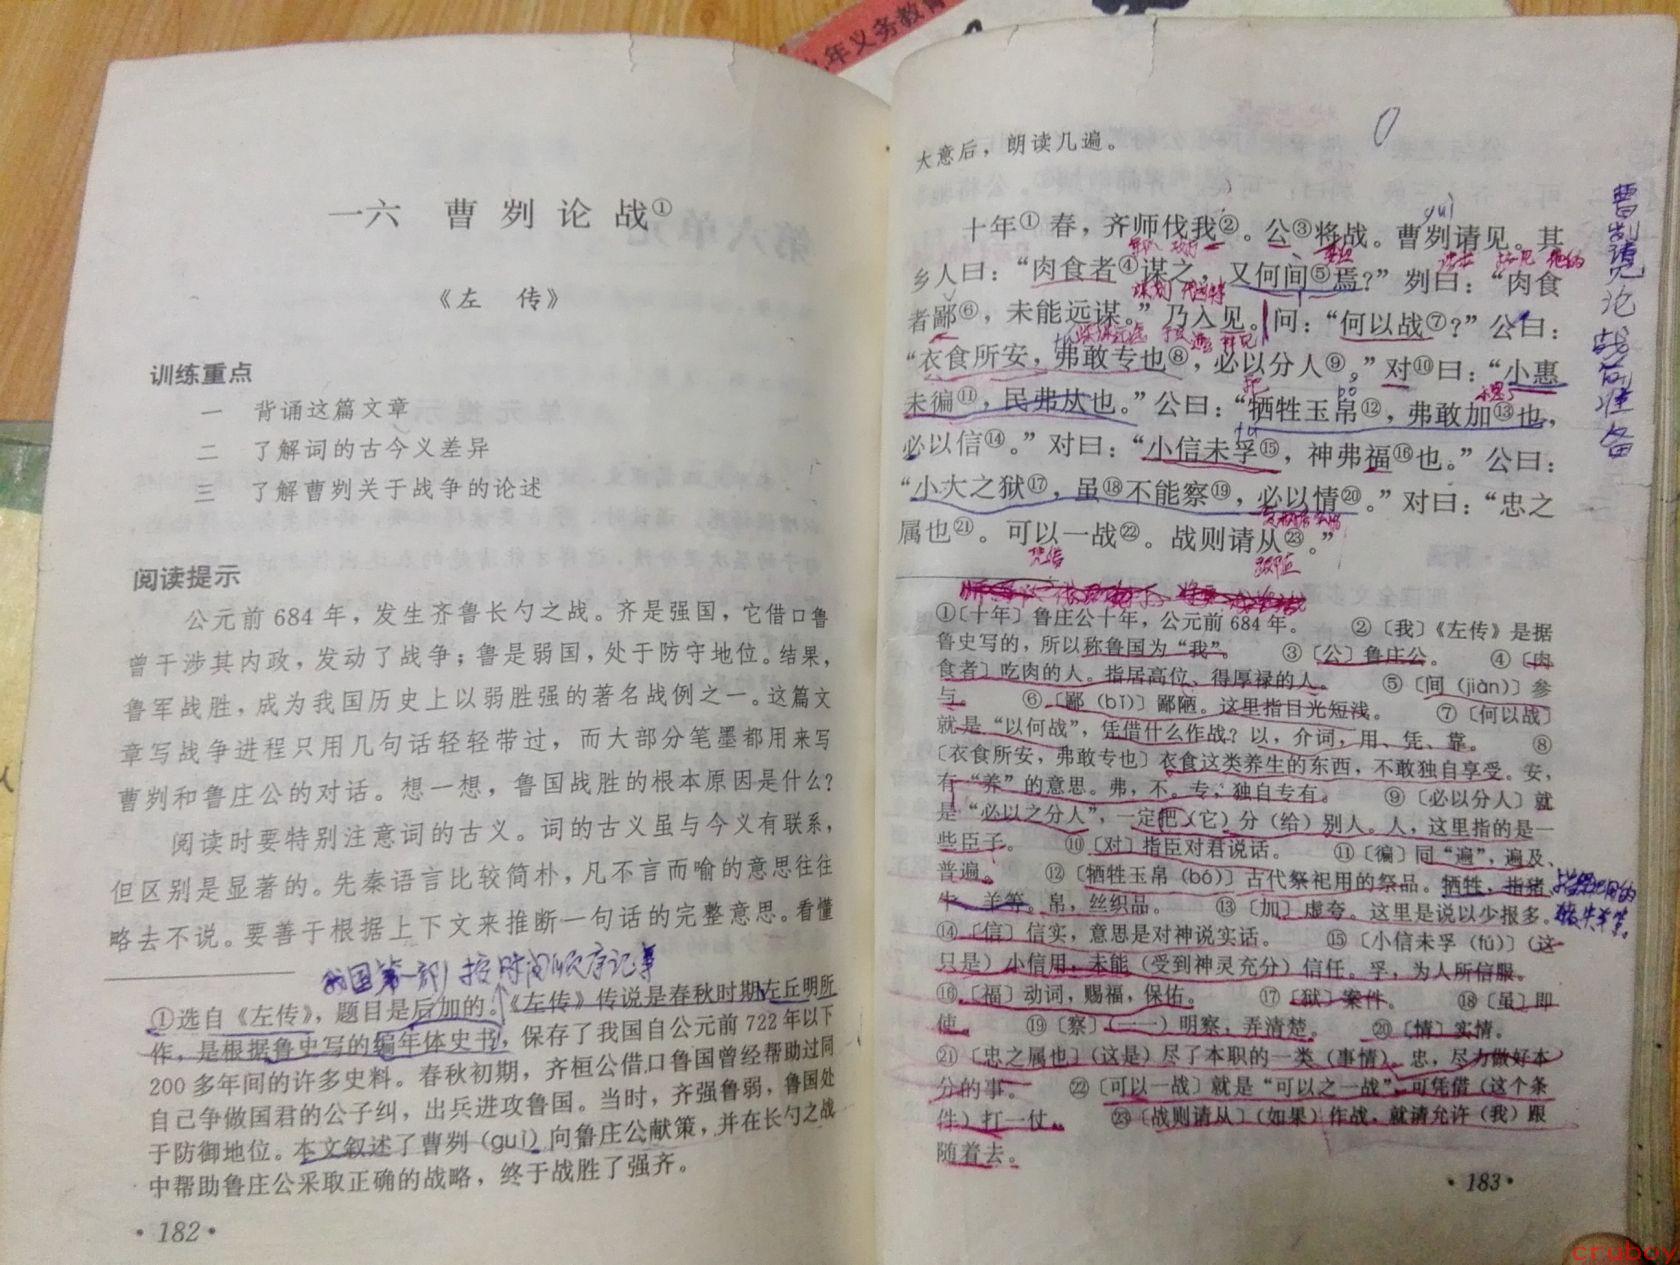 年义务教育
一六 曹刿论战①
《左 传》
训练重点
一 背诵这篇文章
二 了解词的古今义差异
三 了解曹刿关于战争的论述
阅读提示
公元前684年，发生齐鲁长勺之战。齐是强国，它借口鲁
曾干涉其内政，发动了战争；鲁是弱国，处于防守地位。结果，
鲁军战胜，成为我国历史上以弱胜强的著名战例之一。这篇文
章写战争进程只用几句话轻轻带过，而大部分笔墨都用来写
曹刿和鲁庄公的对话。想一想，鲁国战胜的根本原因是什么？
阅读时要特别注意词的古义。词的古义虽与今义有联系，
但区别是显著的。先秦语言比较简朴，凡不言而喻的意思往往
略去不说。要善于根据上下文来推断一句话的完整意思。看懂
我国第一部按时间顺序记事
①选自《左传》，题目是后加的。《左传》传说是春秋时期左丘明所
作，是根据鲁史写的编年体史书，保存了我国自公元前722年以下
200多年间的许多史料。春秋初期，齐桓公借口鲁国曾经帮助过同
自己争做国君的公子纠，出兵进攻鲁国。当时，齐强鲁弱，鲁国处
于防御地位。本文叙述了曹刿（guì）向鲁庄公献策，并在长勺之战
中帮助鲁庄公采取正确的战略，终于战胜了强齐。
·182·
大意后，朗读几遍。
guì
十年①春，齐师伐我②。公③将战。曹刿请见。其
乡人曰：“肉食者④谋之，又何间⑤焉？”刿曰：“肉食
者鄙⑥，未能远谋。”乃入见。问：“何以战⑦？”公曰：
“衣食所安，弗敢专也⑧，必以分人⑨。”对⑩曰：“小惠
未徧⑪，民弗从也。”公曰：“牺牲玉帛⑫，弗敢加⑬也，
必以信⑭。”对曰：“小信未孚⑮，神弗福⑯也。”公曰：
“小大之狱⑰，虽⑱不能察⑲，必以情⑳。”对曰：“忠之
属也㉑。可以一战㉒。战则请从㉓。”
凭借
跟随
①〔十年〕鲁庄公十年，公元前684年。 ②〔我〕《左传》是据
鲁史写的，所以称鲁国为“我”。 ③〔公〕鲁庄公。 ④〔肉
食者〕吃肉的人。指居高位、得厚禄的人。 ⑤〔间（jiàn）〕参
与。 ⑥〔鄙（bǐ）〕鄙陋。这里指目光短浅。 ⑦〔何以战〕
就是“以何战”，凭借什么作战？以，介词，用、凭、靠。 ⑧
〔衣食所安，弗敢专也〕衣食这类养生的东西，不敢独自享受。安，
有“养”的意思。弗，不。专，独自专有。 ⑨〔必以分人〕就
是“必以之分人”，一定把（它）分（给）别人。人，这里指的是一
些臣子。 ⑩〔对〕指臣对君说话。 ⑪〔徧〕同“遍”，遍及、
普遍。 ⑫〔牺牲玉帛（bó）〕古代祭祀用的祭品。牺牲，指猪
牛、羊等。帛，丝织品。 ⑬〔加〕虚夸。这里是说以少报多。
⑭〔信〕信实，意思是对神说实话。 ⑮〔小信未孚（fú）〕（这
只是）小信用，未能（受到神灵充分）信任。孚，为人所信服。
⑯〔福〕动词，赐福，保佑。 ⑰〔狱〕案件。 ⑱〔虽〕即
使。 ⑲〔察〕（一一）明察，弄清楚。 ⑳〔情〕实情。
㉑〔忠之属也〕（这是）尽了本职的一类（事情）。忠，尽力做好本
分的事。 ㉒〔可以一战〕就是“可以之一战”，可凭借（这个条
件）打一仗。 ㉓〔战则请从〕（如果）作战，就请允许（我）跟
随着去。
·183·
cruboy